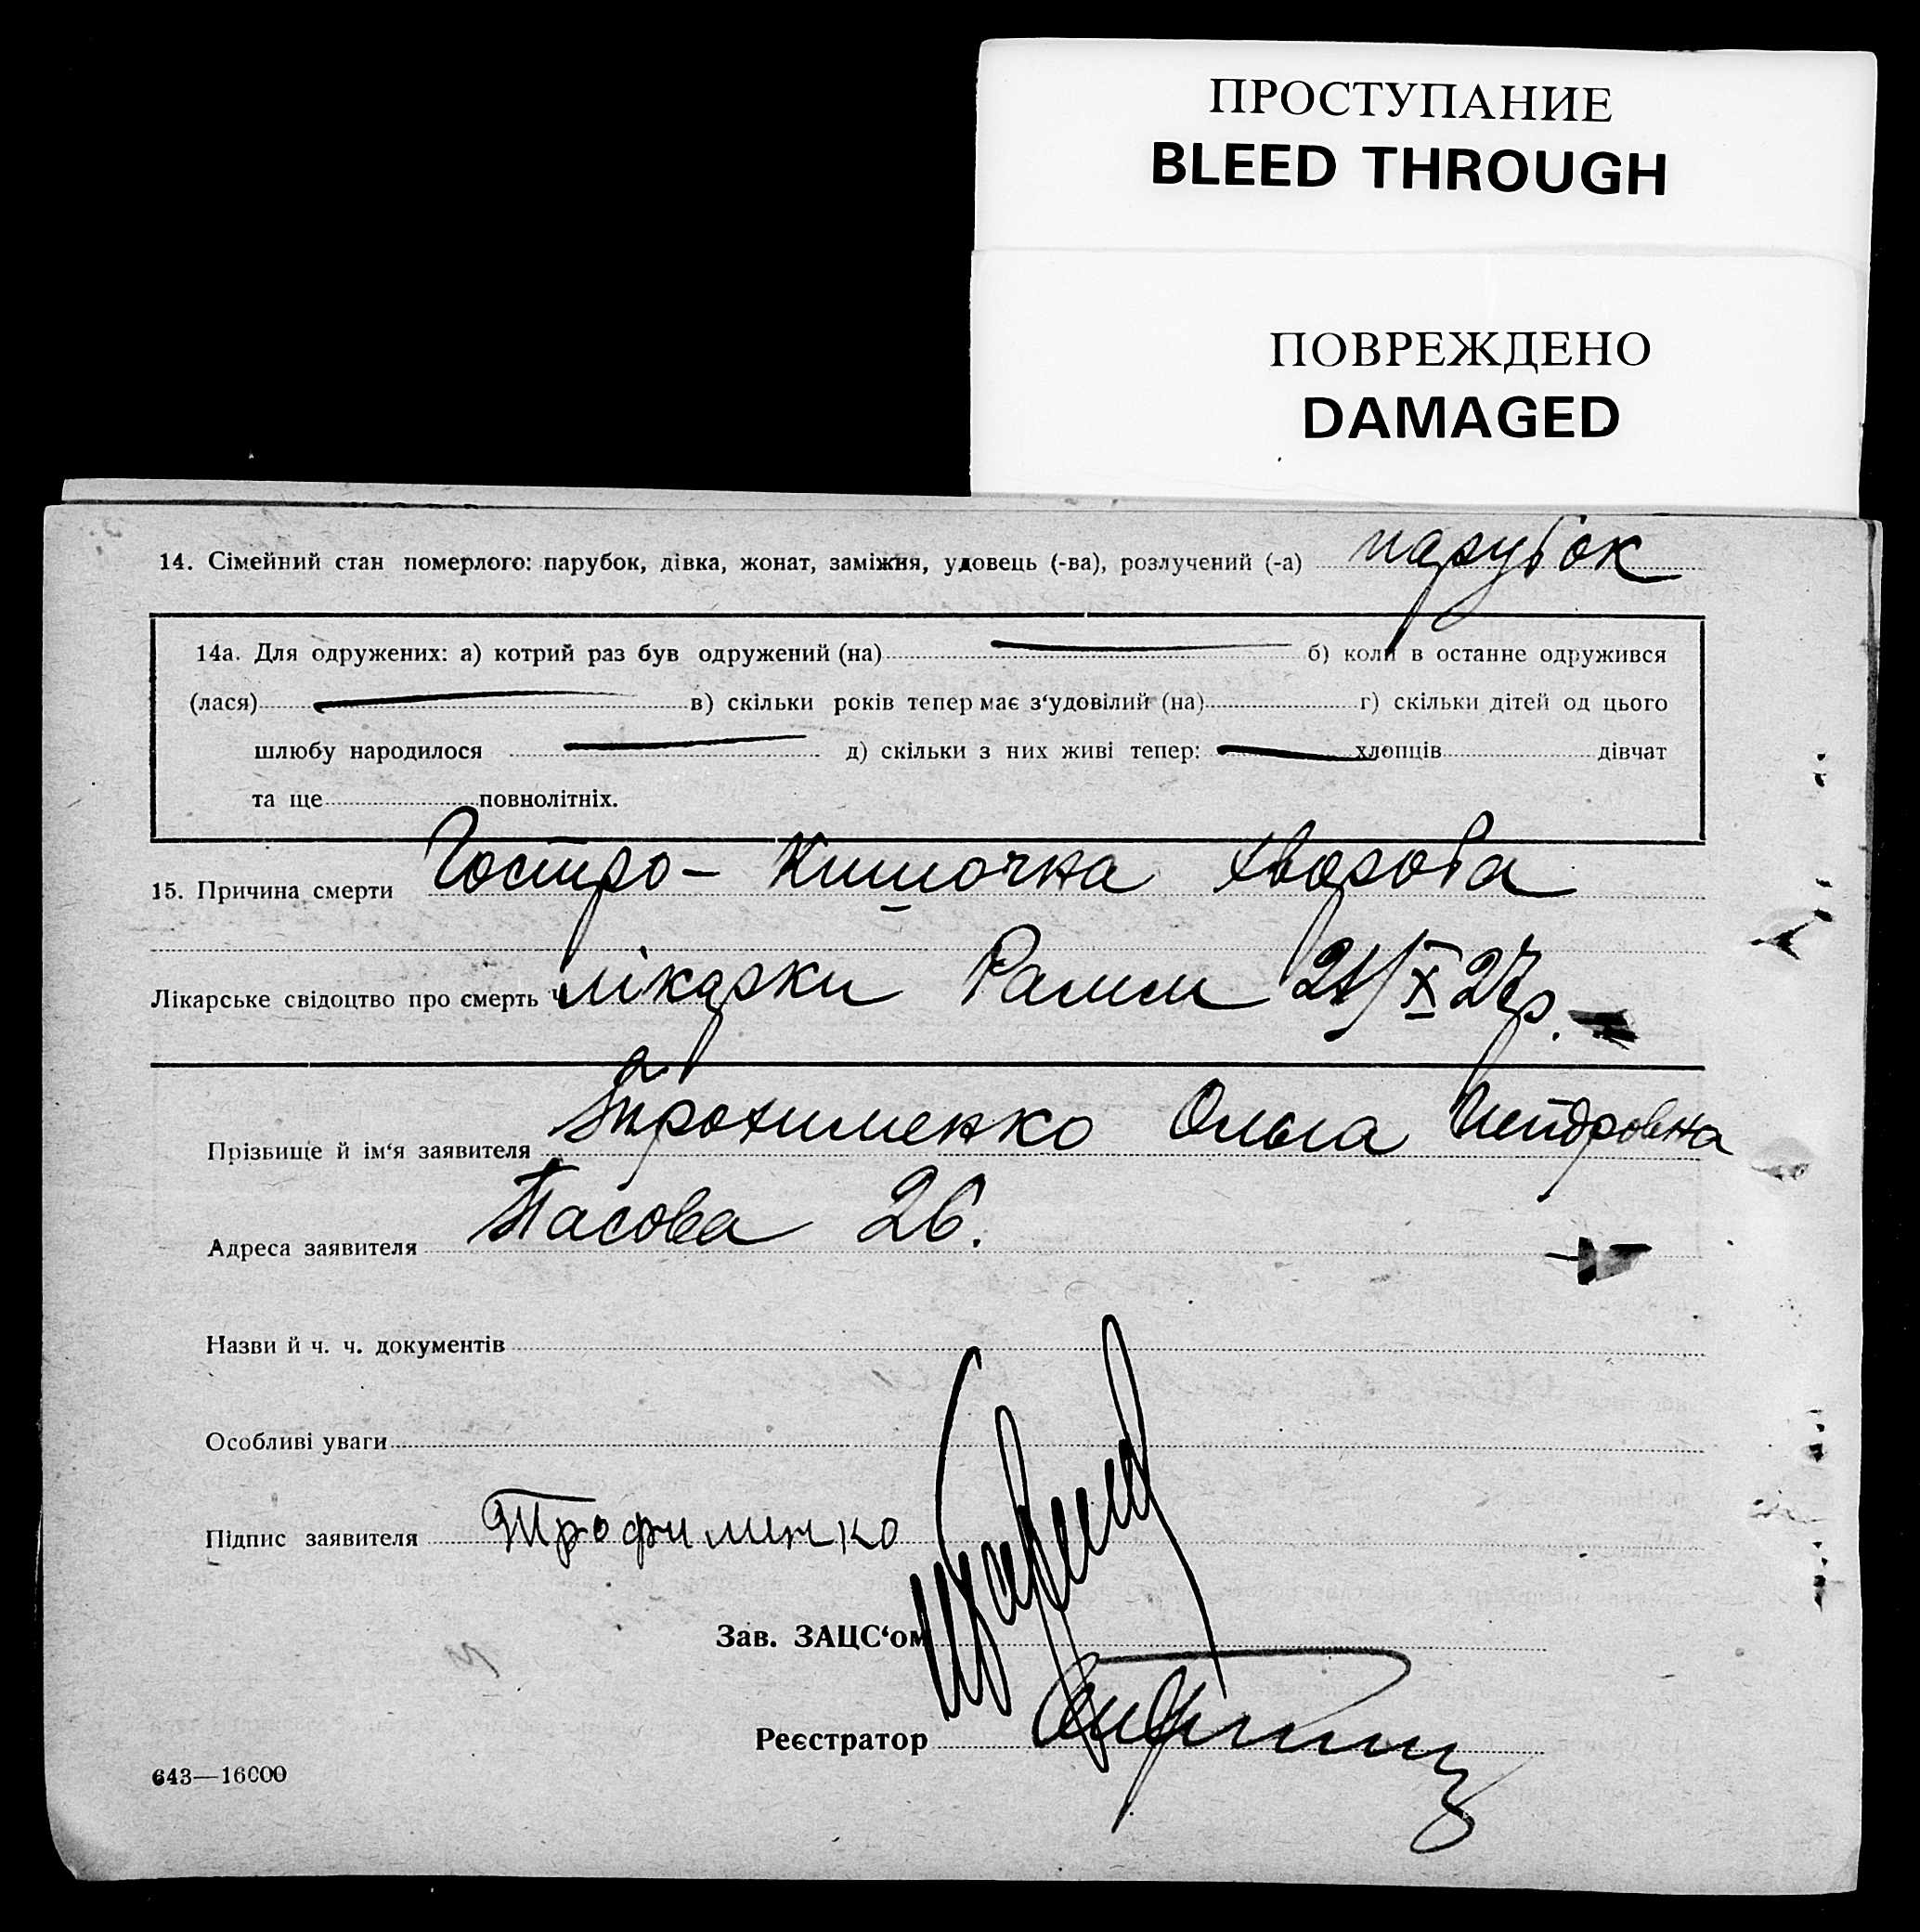 ПРОСТУПАНИЕ
BLEED THROUGH
ПОВРЕЖДЕНО
DAMAGED
14. Сімейний стан померлого: парубок, дівка, жонат, заміжня, удовець (-ва), розлучений (-а) парубок
14а. Для одружених: а) котрий раз був одружений (на) б) коли в останне одружився
(лася) в) скільки років тепер має з‘удовілий (на) г) скільки дітей од цього
шлюбу народилося д) скільки з них живі тепер: хлопців дівчат
та ще повнолітніх.
15. Причина смерти Гостро- Кишочна хвороба
Лікарське свідоцтво про смерть лікарки 21/X 27р.
Прізвище й ім‘я заявителя Трохименко Ольга Петровна
Адреса заявителя Пасова 26.
Назви й ч. ч. документів
Особливі уваги
Підпис заявителя Трофименко
Зав. ЗАЦС‘ом
Реєстратор
643—16000